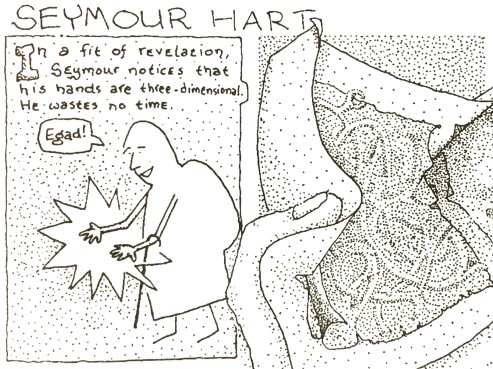 SEYMOUR HART
In a fit of revelation,
Seymour notices that
his hands are three-dimensional.
He wastes no time.
Egad!